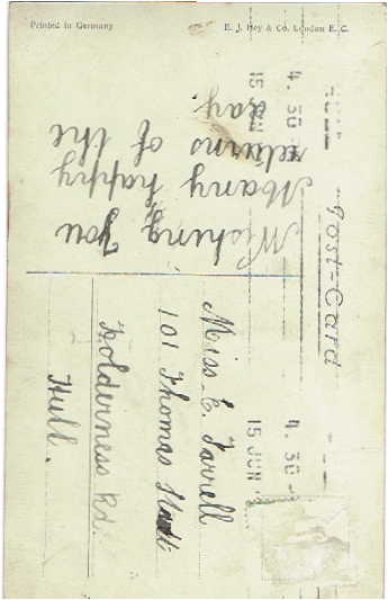 Printed in Germany
E. J. Hey & Co. London E. C.
Post-Card
4. 30
15 JUN
4. 30
15 JUN
Wishing you
Many happy
returns of the
day.
Miss E. Farrell
101 Thomas
Holderness Rd.
Hull.